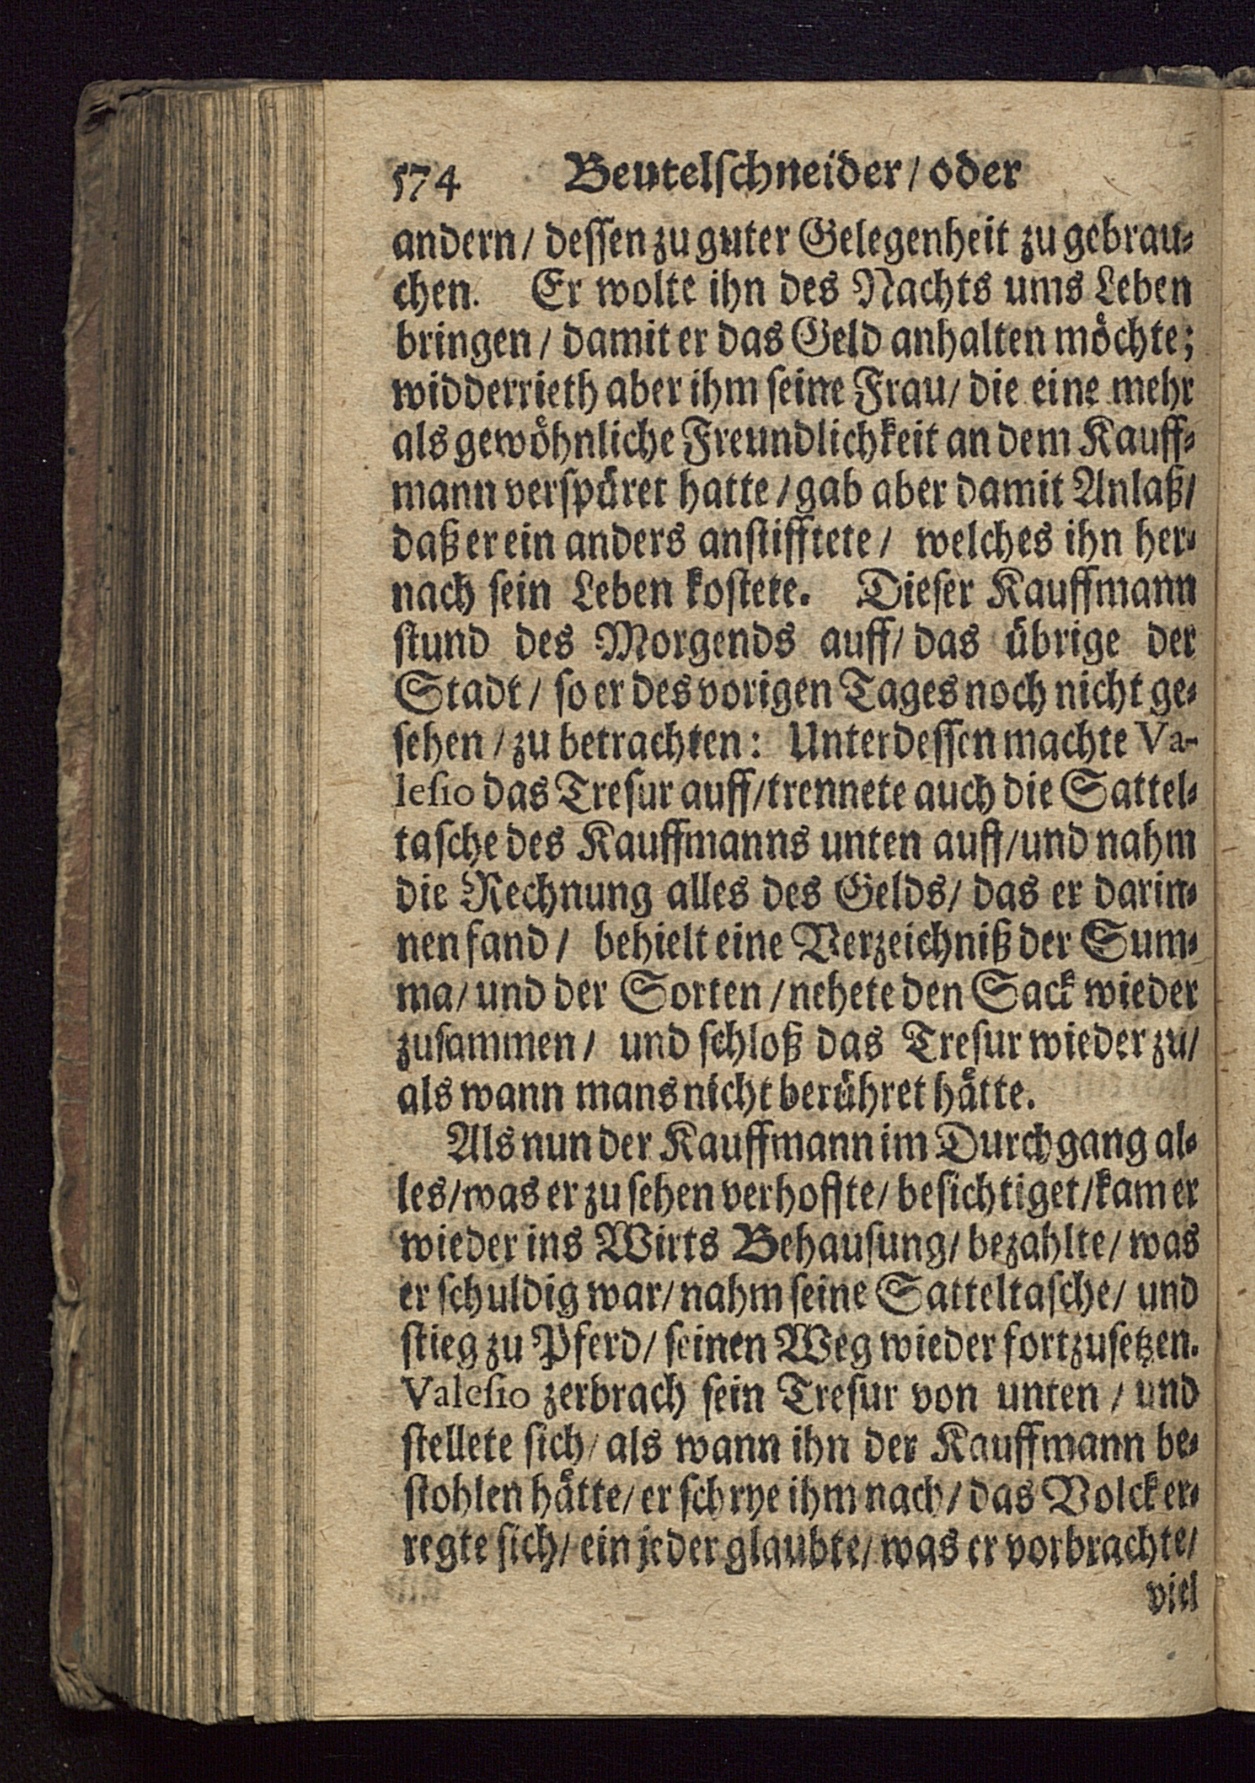 574 Beutelschneider / oder
andern / dessen zu guter Gelegenheit zu gebrau-
chen. Er wolte ihn des Nachts ums Leben
bringen / damit er das Geld anhalten möchte;
widderrieth aber ihm seine Frau / die eine mehr
als gewöhnliche Freundlichkeit an dem Kauff-
mann verspüret hatte / gab aber damit Anlaß /
daß er ein anders anstifftete / welches ihn her-
nach sein Leben kostete. Dieser Kauffmann
stund des Morgends auff / das übrige der
Stadt / so er des vorigen Tages noch nicht ge-
sehen / zu betrachten: Unterdessen machte Va-
lesio das Tresur auff / trennete auch die Sattel-
tasche des Kauffmanns unten auff / und nahm
die Rechnung alles des Gelds / das er darin-
nen fand / behielt eine Verzeichniß der Sum-
ma / und der Sorten / nehete den Sack wieder
zusammen / und schloß das Tresur wieder zu /
als wann mans nicht berühret hätte.
Als nun der Kauffmann im Durchgang al-
les / was er zu sehen verhoffte / besichtiget / kam er
wieder ins Wirts Behausung / bezahlte / was
er schuldig war / nahm seine Satteltasche / und
stieg zu Pferd / seinen Weg wieder fortzusetzen.
Valesio zerbrach sein Tresur von unten / und
stellete sich / als wann ihn der Kauffmann be-
stohlen hätte / er schrye ihm nach / das Volck er-
regte sich / ein jeder glaubte / was er vorbrachte /
viel